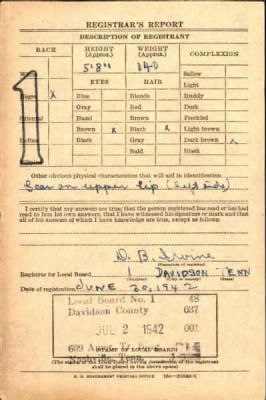 REGISTRAR'S REPORT
DESCRIPTION OF REGISTRANT
RACE HEIGHT (Approx.) WEIGHT (Approx.) COMPLEXION
5'8" 140
Sallow
EYES HAIR Light
Negro X Blue Blonde Ruddy
Gray Red Dark
Oriental Hazel Brown Freckled
Brown X Black X Light brown
Indian Black Gray Dark brown X
Bald Black
Other obvious physical characteristics that will aid in identification
Scar on upper lip (left side)
I certify that my answers are true; that the person registered has read or has had
read to him his own answers; that I have witnessed his signature or mark and that
all of his answers of which I have knowledge are true, except as follows:
D. B. Irvine
Registrar for Local Board 1 DAVIDSON TENN
Date of registration JUNE 30, 1942
Local Board No. 1 48
Davidson County 037
JUL 2 1942 001
609
(STAMP OF LOCAL BOARD)
(The stamp of the Local Board having jurisdiction of the registrant shall be
placed in the above space.)
U. S. GOVERNMENT PRINTING OFFICE